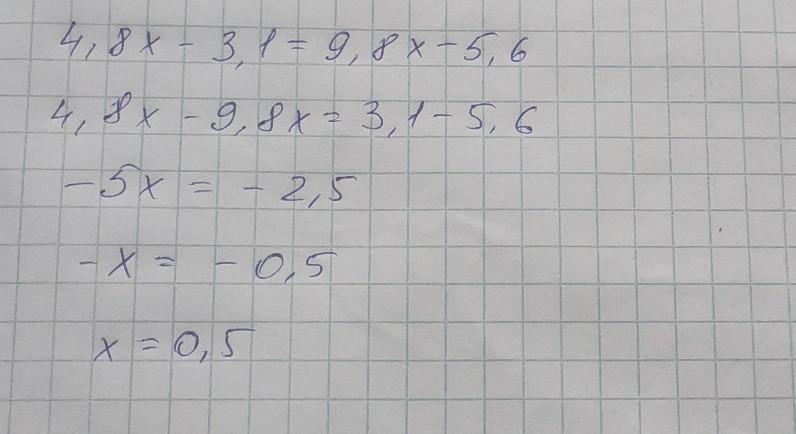 4,8x - 3,1 = 9,8x - 5,6
4,8x - 9,8x = 3,1 - 5,6
-5x = -2,5
-x = -0,5
x = 0,5